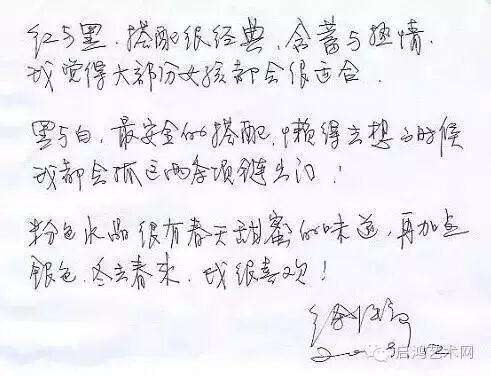 红与黑，搭配很经典，含蓄与热情，
我觉得大部份女孩都会很适合．
黑与白，最安全的搭配，懒得去想的时候
我都会抓这两条项链出门！
粉色水晶很有春天甜蜜的味道，再加点
银色．冬去春来．我很喜欢！
启鸿艺术网